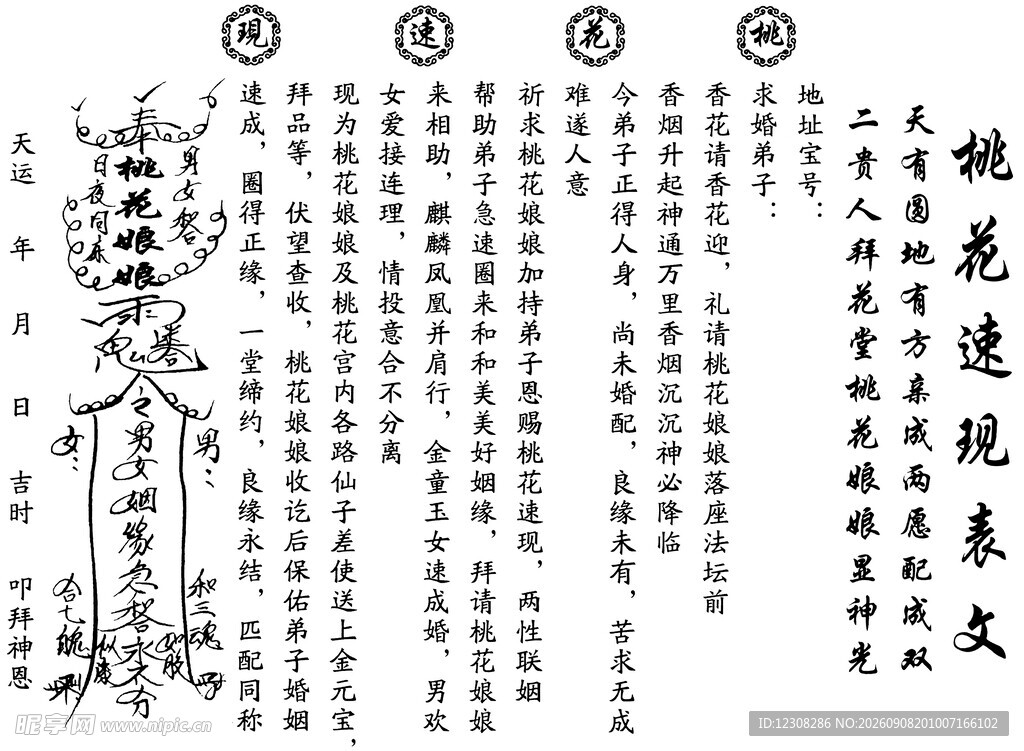 桃花速現
桃花速现表文
天有圆地有方亲成两愿配成双
二贵人拜花堂桃花娘娘显神光
地址宝号：
求婚弟子：
香花请香花迎，礼请桃花娘娘落座法坛前
香烟升起神通万里香烟沉沉神必降临
今弟子正得人身，尚未婚配，良缘未有，苦求无成
难遂人意
祈求桃花娘娘加持弟子恩赐桃花速现，两性联姻
帮助弟子急速圈来和和美美好姻缘，拜请桃花娘娘
来相助，麒麟凤凰并肩行，金童玉女速成婚，男欢
女爱接连理，情投意合不分离
现为桃花娘娘及桃花宫内各路仙子差使送上金元宝，
拜品等，伏望查收，桃花娘娘收讫后保佑弟子婚姻
速成，圈得正缘，一堂缔约，良缘永结，匹配同称
奉
桃花娘娘
日夜同床
男女合
令男女姻缘急合永不分
男：
女：
和三魂
合七魄
如胶
似漆
天运 年 月 日 吉时 叩拜神恩
昵享网 www.nipic.cn
ID:12308286 NO:20260908201007166102